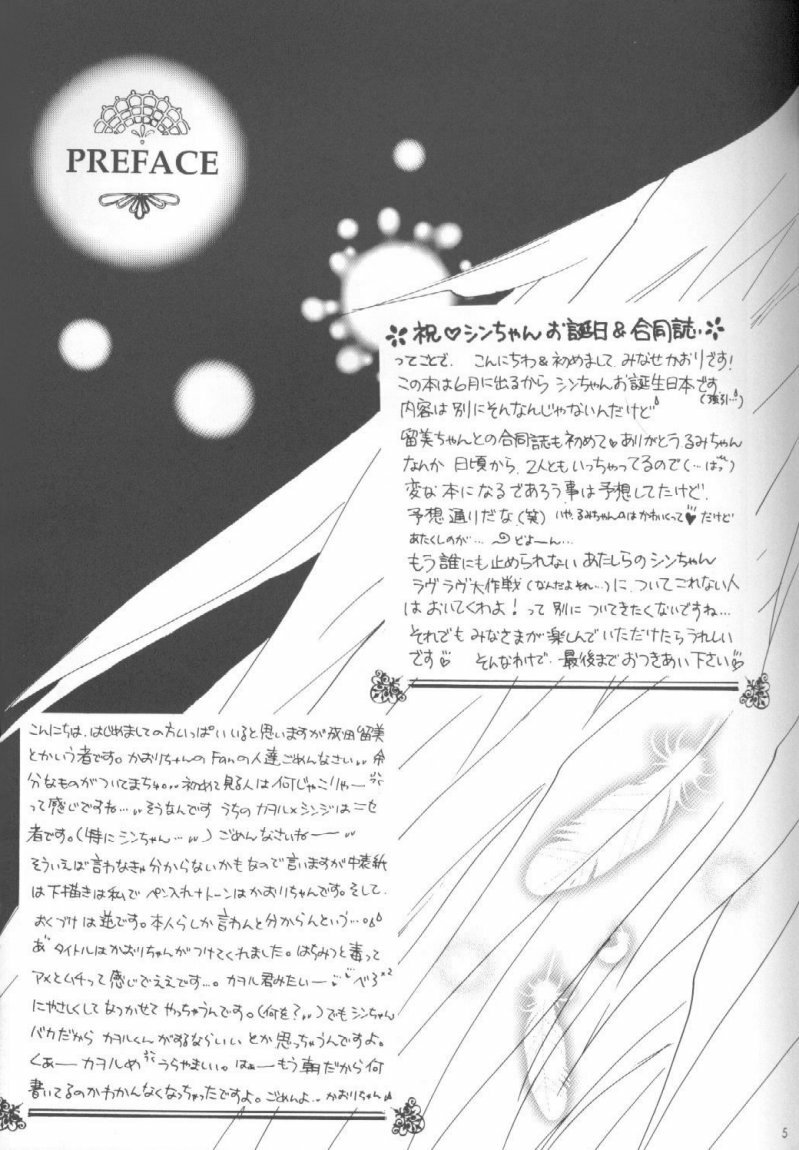 PREFACE
祝♡シンちゃんお誕日&合同誌
ってことで、こんにちわ&初めまして、みなせかおりです!
この本は6月に出るから シンちゃんお誕生日本です
(強引…)
内容は別にそんなんじゃないんだけど
留美ちゃんとの合同誌も初めて♥ありがとうるみちゃん
なんか 日頃から、2人ともいっちゃってるので(…ばっ)
変な本になるであろう事は予想してたけど、
予想通りだな(笑) いや、るみちゃんのはかわいくって♥だけど
あたくしのが… どよーん…
もう誰にも止められない あたしらのシンちゃん
ラヴラヴ大作戦(なんだよそれ…)に、ついてこれない人
はおいてくわよ! って 別に ついてきたくないですね…
それでも みなさまが楽しんでいただけたらうれしい
です♡ そんなわけで、最後までおつきあい下さい♡
こんにちは、はじめましての方いっぱいいると思いますが 成田留美
とかいう者です。かおりちゃんのFanの人達ごめんなさい 余
分なものがついてまちゅ。初めて見る人は何じゃこりゃー
って感じですね… そうなんです うちのカヲル×シンジはニセ
者です。(特にシンちゃん…)ごめんなさいねー
そういえば言わなきゃ分からないかもなので言いますが 牛裏紙
は下描きは私で ペン入れ+トーンはかおりちゃんです。そして、
おくづけは逆です。本人らしか言わんと分からんという…。
あ タイトルはかおりちゃんがつけてくれました。はちみつと毒って
アメとムチって感じでええです…。カヲル君みたいー べろ×2
にやさしくしてなつかせて やっちゃうんです。(何を?)でもシンちゃん
バカだから カヲルくんがするならいい とか思っちゃうんですよ。
くぁー カヲルめ うらやましい。はぁー もう朝だから何
書いてるのかわかんなくなっちゃったですよ。ごめんよ‥かおりちゃん
5